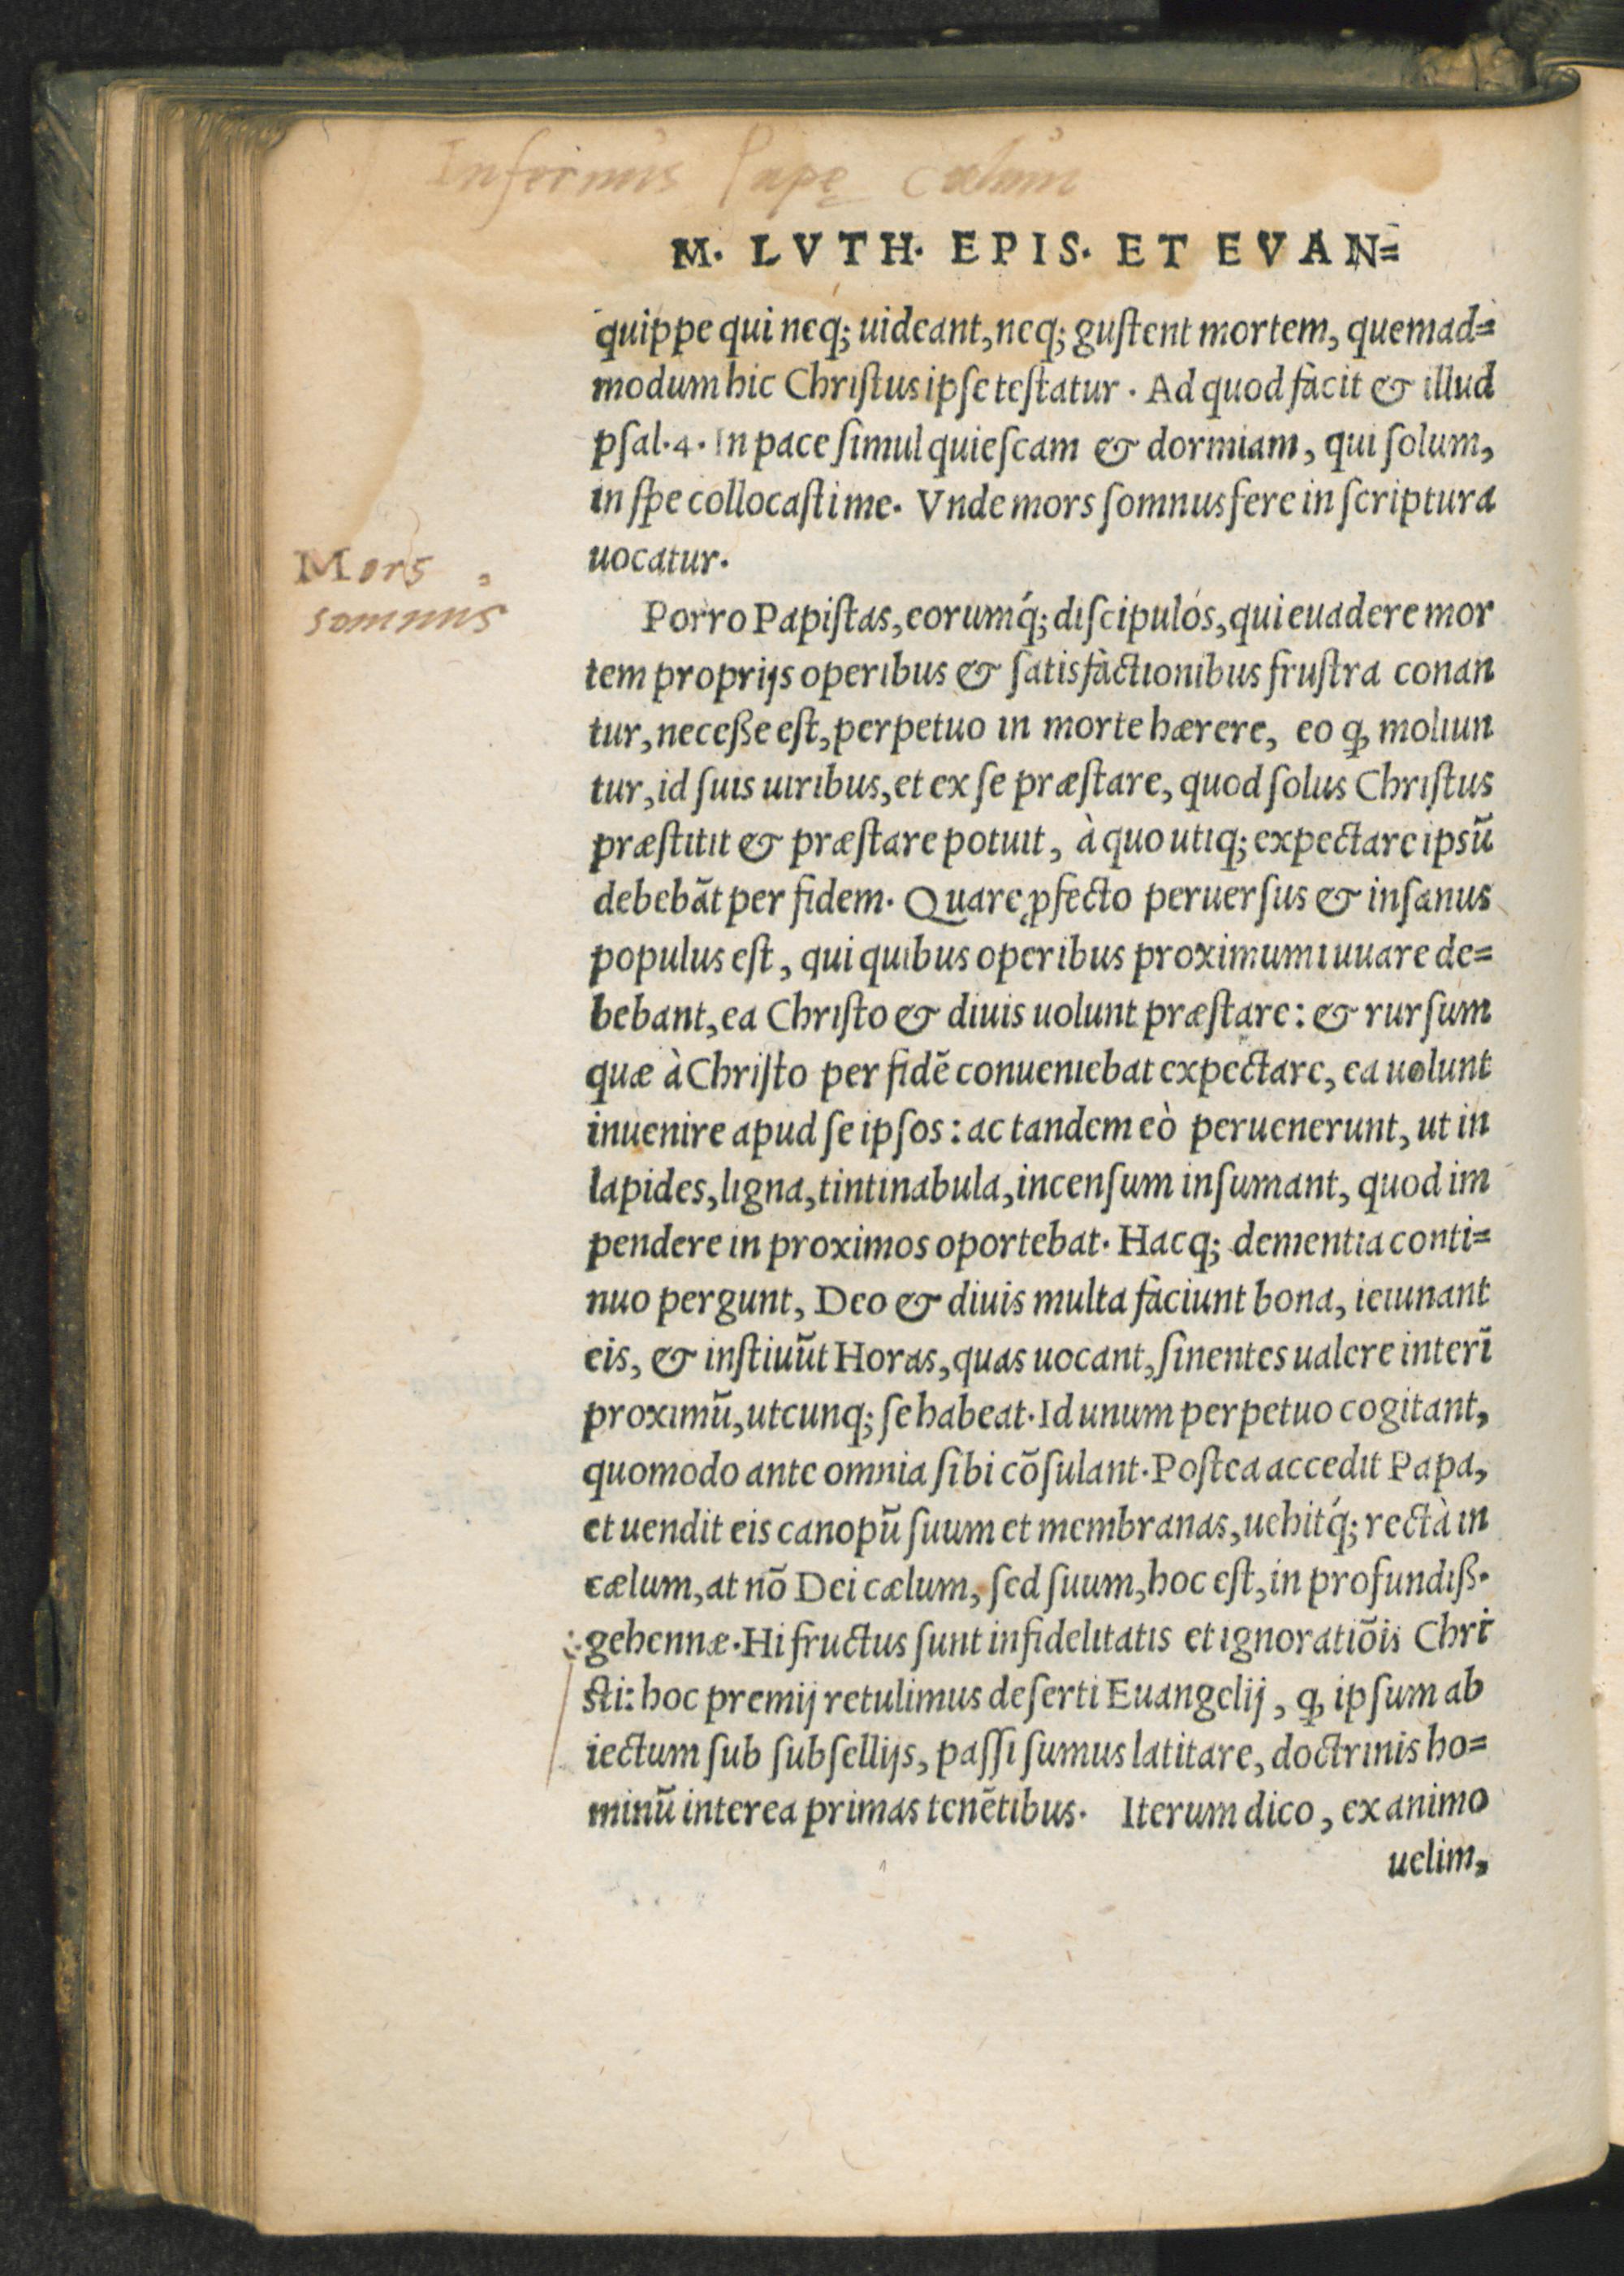 Infernus Papę cælum
M. LVTH. EPIS. ET EVAN=
quippe qui neq; uideant, neq; guſtent mortem, quemad=
modum hic Chriſtus ipſe teſtatur. Ad quod facit & illud
pſal. 4. In pace ſimul quieſcam & dormiam, qui ſolum,
in ſpe collocaſti me. Vnde mors ſomnus fere in ſcriptura
uocatur.
Mors
somnus
Porro Papiſtas, eorumq́; diſcipulos, qui euadere mor
tem proprijs operibus & ſatisfactionibus fruſtra conan
tur, neceße eſt, perpetuo in morte hærere, eo ꝙ moliun
tur, id ſuis uiribus, et ex ſe præſtare, quod ſolus Chriſtus
præſtitit & præſtare potuit, à quo utiq; expectare ipsũ
debebãt per fidem. Quare ꝓfecto peruerſus & inſanus
populus eſt, qui quibus operibus proximum iuuare de=
bebant, ea Chriſto & diuis uolunt præſtare: & rurſum
quæ à Chriſto per fidẽ conueniebat expectare, ea uolunt
inuenire apud ſe ipſos: ac tandem eò peruenerunt, ut in
lapides, ligna, tintinabula, incenſum inſumant, quod im
pendere in proximos oportebat. Hacq; dementia conti=
nuo pergunt, Deo & diuis multa faciunt bona, ieiunant
eis, & inſtiuũt Horas, quas uocant, ſinentes ualere interĩ
proximũ, utcunq; ſe habeat. Id unum perpetuo cogitant,
quomodo ante omnia ſibi cõſulant. Poſtea accedit Papa,
et uendit eis canopũ ſuum et membranas, uehitq́; rectà in
cælum, at nõ Dei cælum, ſed ſuum, hoc eſt, in profundiß.
gehennæ. Hi fructus ſunt infidelitatis et ignoratiõis Chri
ſti: hoc premij retulimus deſerti Euangelij, ꝙ ipſum ab
iectum ſub ſubſellijs, paſſi ſumus latitare, doctrinis ho=
minũ interea primas tenẽtibus. Iterum dico, ex animo
uelim,